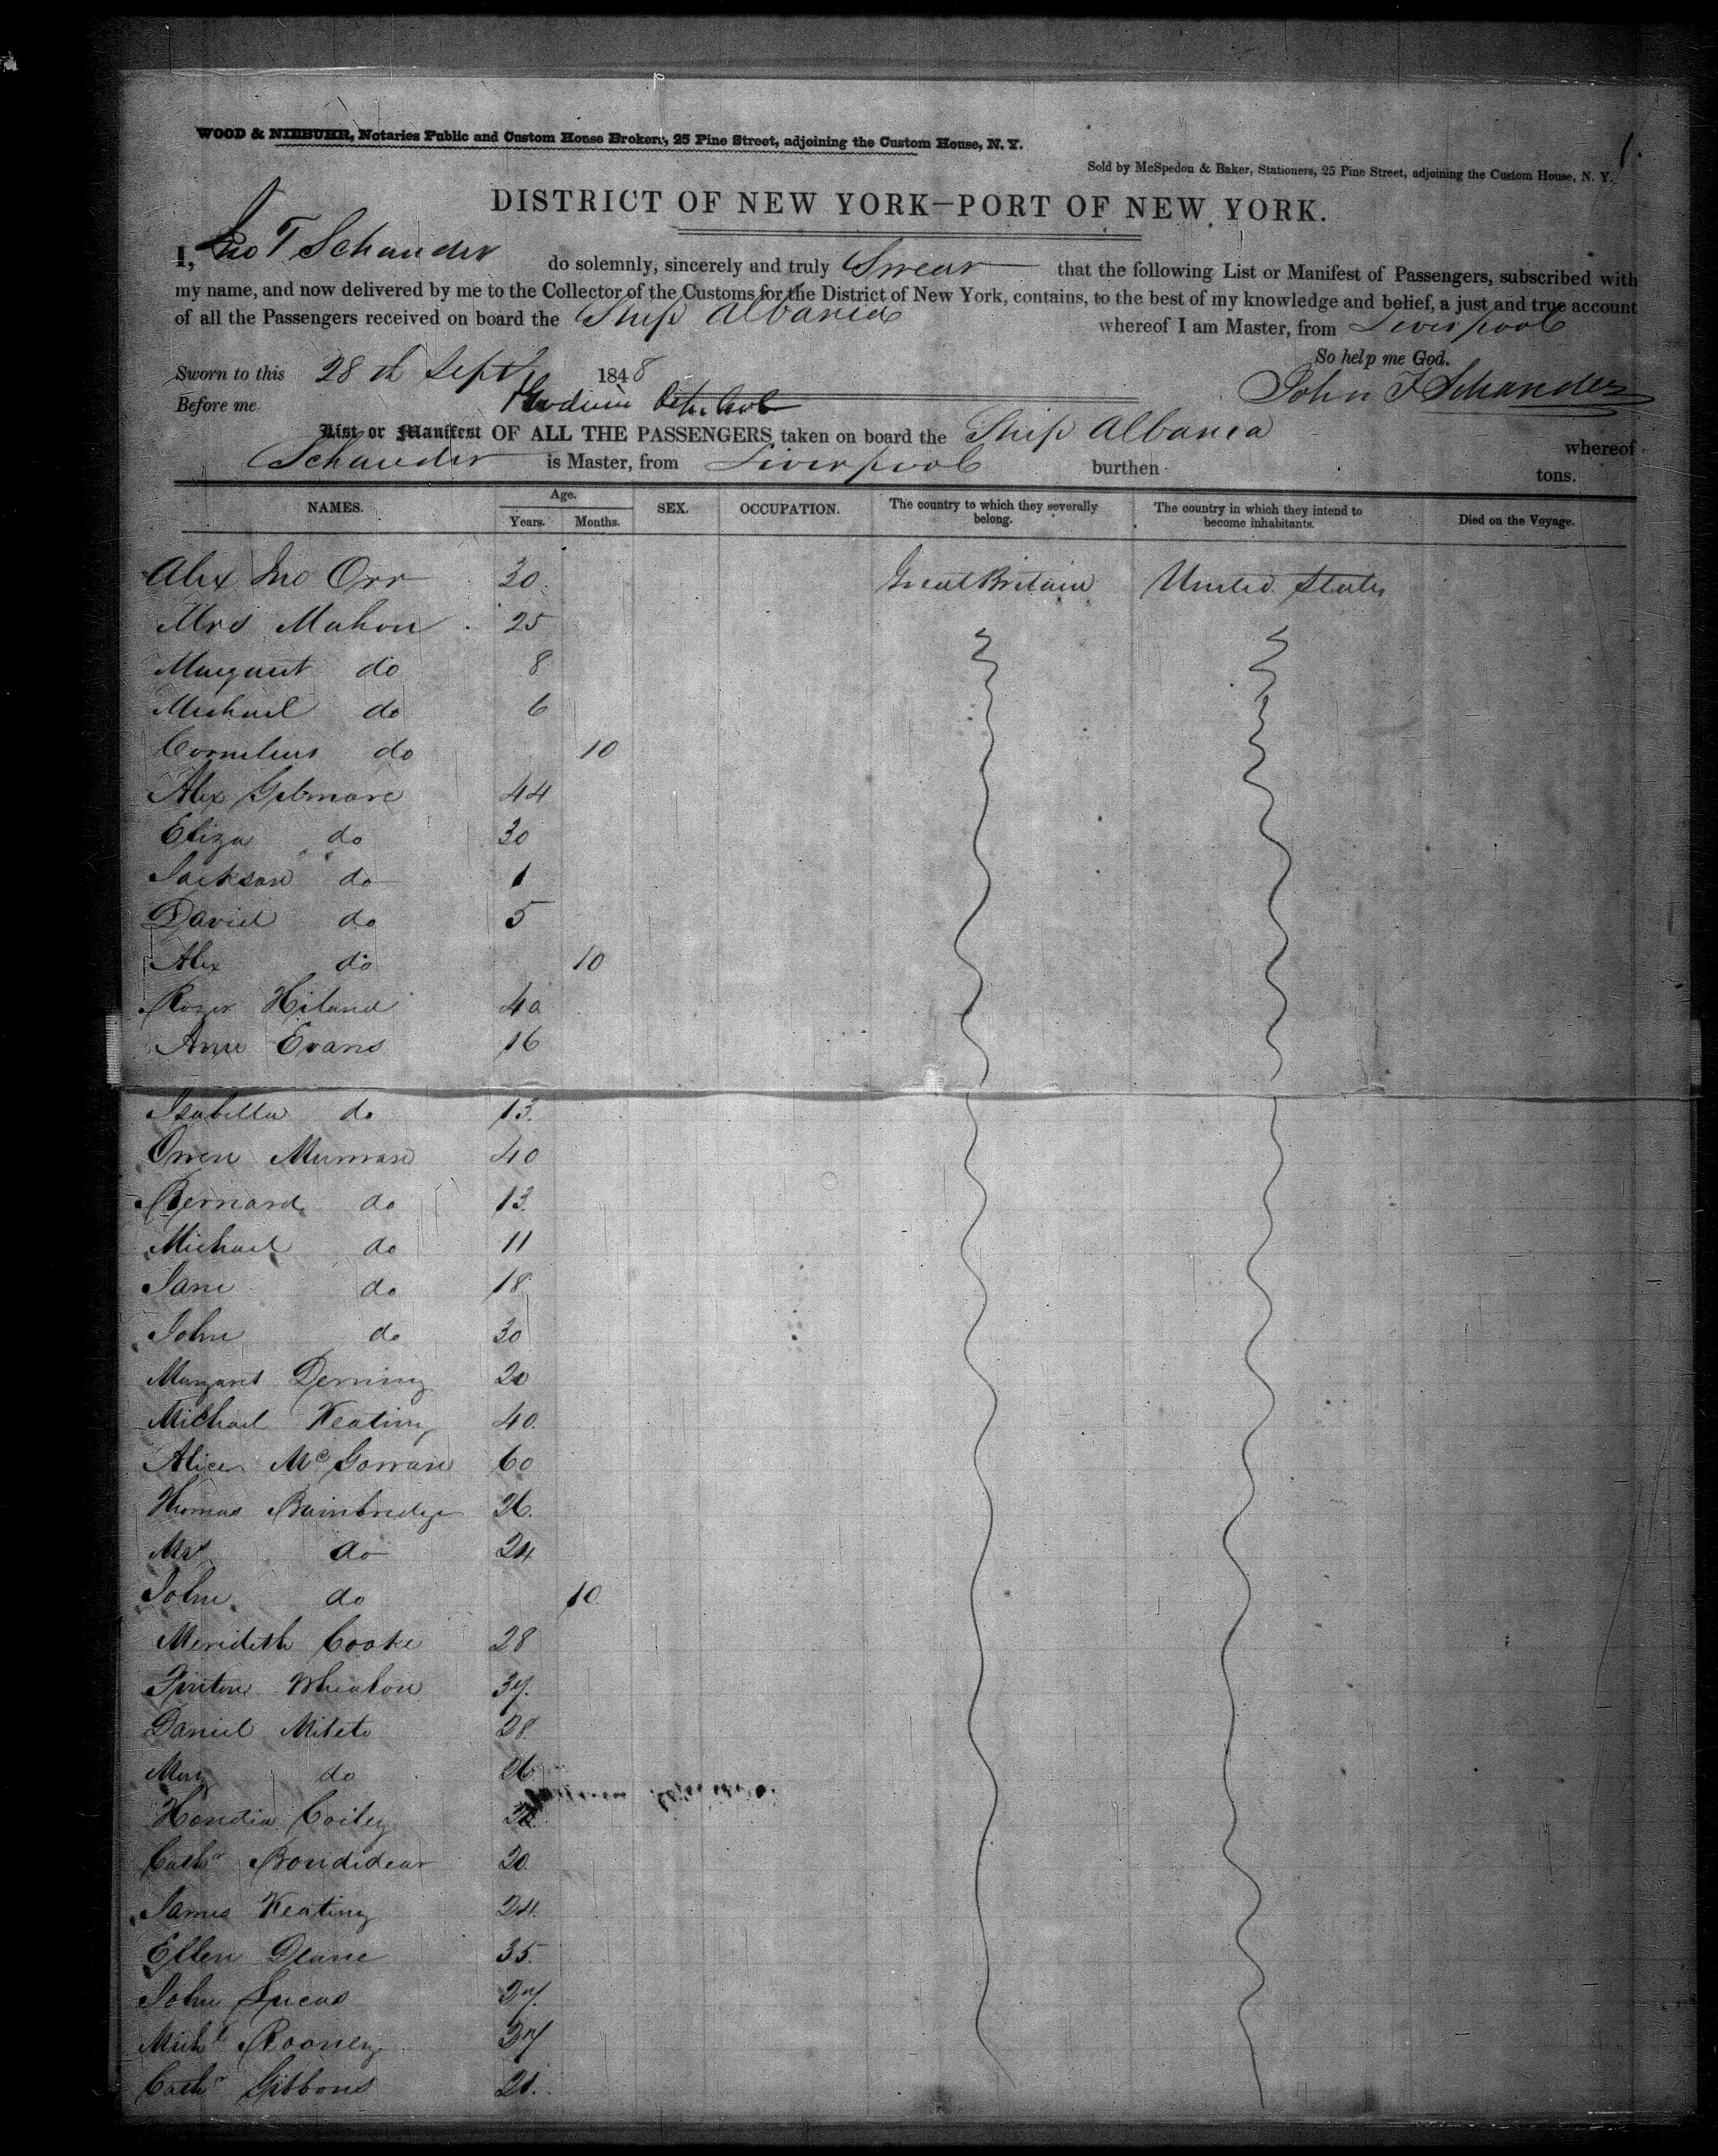 1.
WOOD & NIEBUHR, Notaries Public and Custom House Brokers, 25 Pine Street, adjoining the Custom House, N. Y.
Sold by McSpedon & Baker, Stationers, 25 Pine Street, adjoining the Custom House, N. Y.
DISTRICT OF NEW YORK—PORT OF NEW YORK.
I, Jno T Schander do solemnly, sincerely and truly Swear that the following List or Manifest of Passengers, subscribed with
my name, and now delivered by me to the Collector of the Customs for the District of New York, contains, to the best of my knowledge and belief, a just and true account
of all the Passengers received on board the Ship Albania whereof I am Master, from Liverpool
So help me God.
Sworn to this 28th Sept 1848 John T Schander
Before me
List or Manifest OF ALL THE PASSENGERS taken on board the Ship Albania whereof
Schander is Master, from Liverpool burthen tons.
NAMES. Age. Years. Months. SEX. OCCUPATION. The country to which they severally belong. The country in which they intend to become inhabitants. Died on the Voyage.
Alex Jno Orr 30 Great Britain United States
Mrs Mahon 25
Margaret do 8
Michael do 6
Cornelius do 10
Alex Gilmore 44
Eliza do 30
Jackson do 1
David do 5
Alex do 10
Roger Hiland 40
Ann Evans 16
Isabella do 13
Owen 40
Bernard do 13
Michael do 11
Jane do 18
John do 30
Margaret Derning 20
Michael Keating 40
Alice McGorran 60
Thomas Bainbridge 26
Mrs do 24
John do 10
Meridith Cooke 28
Finton Whealon 37
Daniel 28
Mary do 26
Coiley
Cathn 20
James Keating 24
Ellen Deane 35
John Lucas 27
Michl Rooney 27
Cathn Gibbons 21